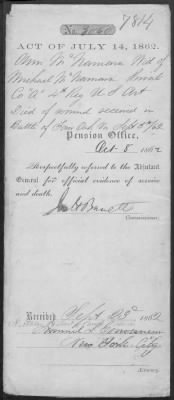 7814
No.
ACT OF JULY 14, 1862.
Ann McNamara Wid of
Michael McNamara Private
Co "A" 4th Reg U S Art
Died of wound received in
Battle of
Pension Office,
Oct 8 1862
Respectfully referred to the Adjutant
General for official evidence of service
and death.
Commissioner.
Received Sept 23d 1862
New York City
Attorney.